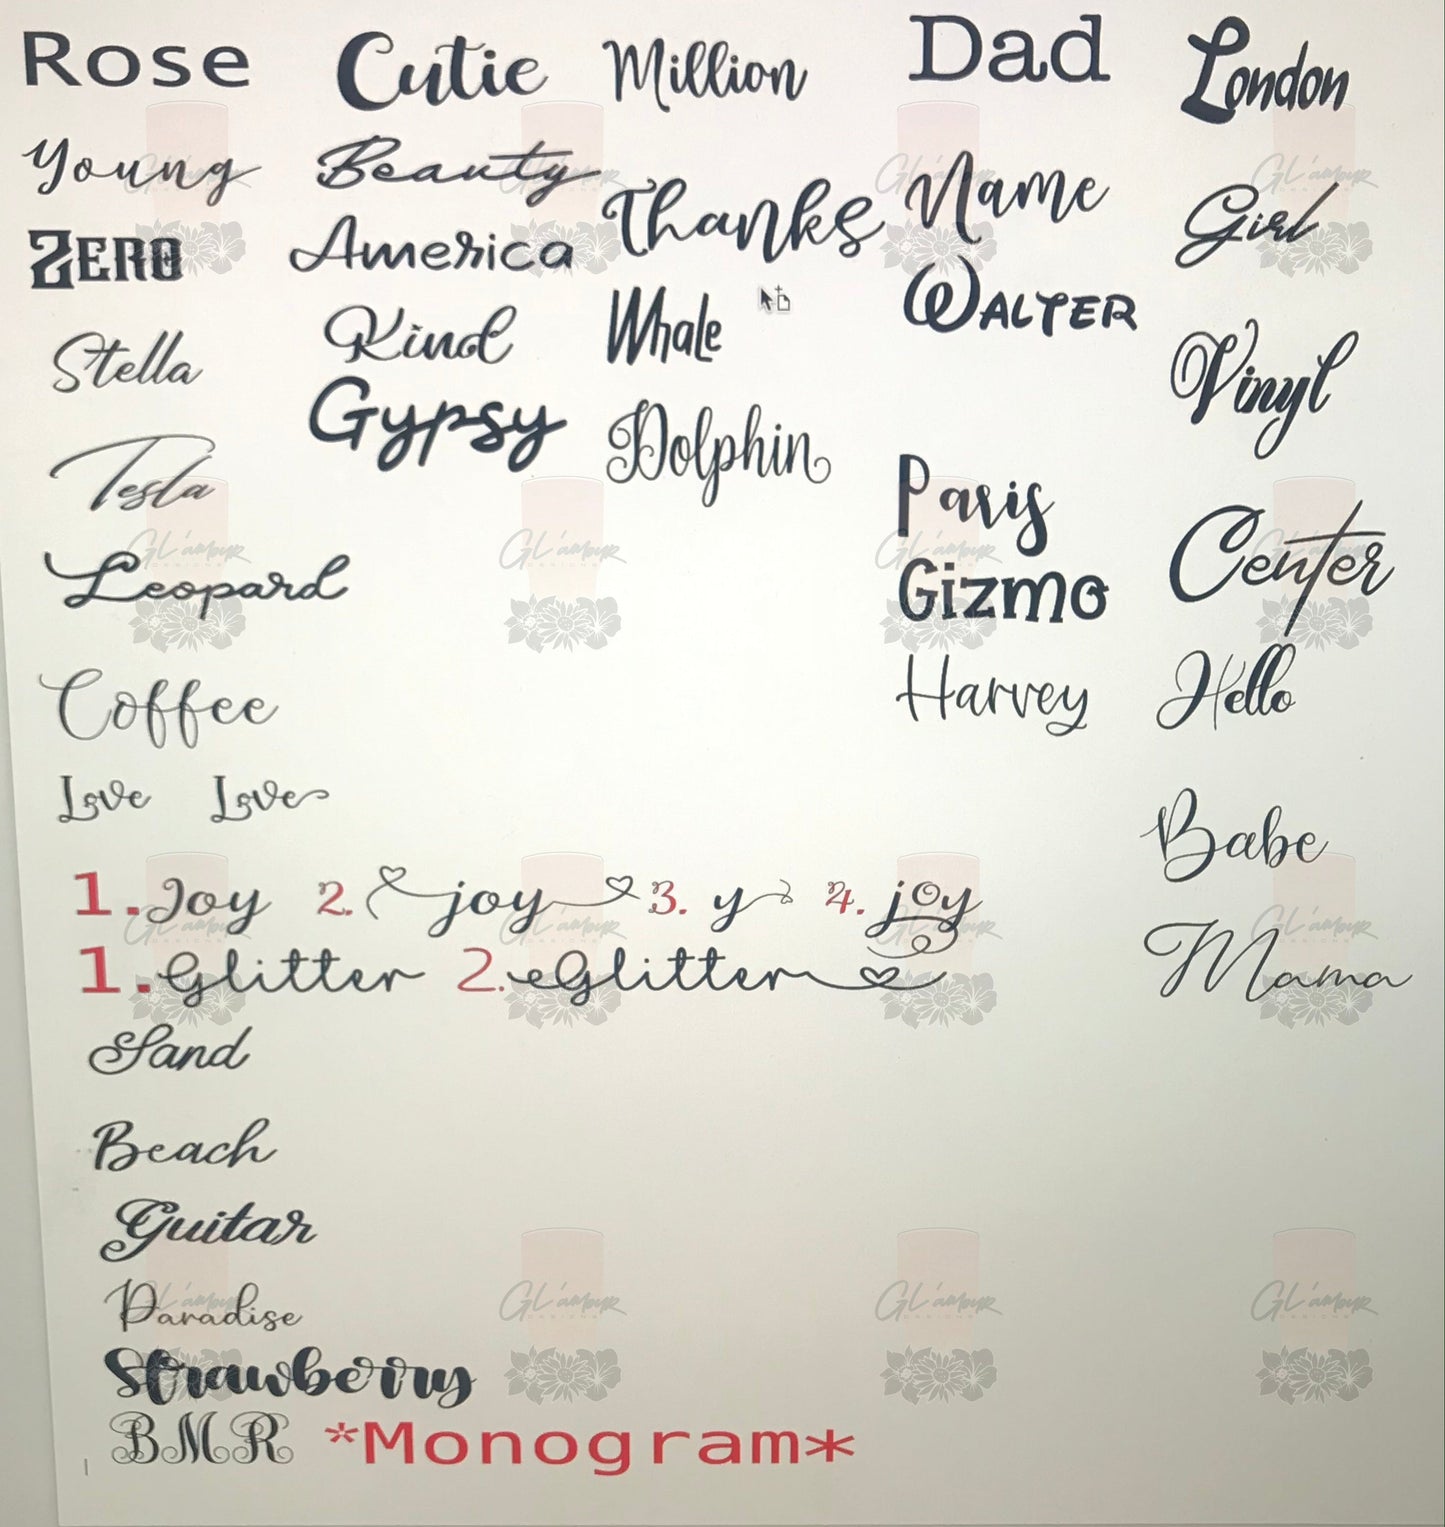 Rose
Cutie
Million
Dad
London
Young
Beauty
Thanks
Name
Girl
Zero
America
Whale
Walter
Vinyl
Stella
Kind
Dolphin
Paris
Center
Tesla
Gypsy
Gizmo
Hello
Leopard
Harvey
Babe
Coffee
Mama
Love Love
1. Joy 2. joy 3. y 4. joy
1. Glitter 2. Glitter
Sand
Beach
Guitar
Paradise
Strawberry
BMR *Monogram*
GL'amour
DESIGNS